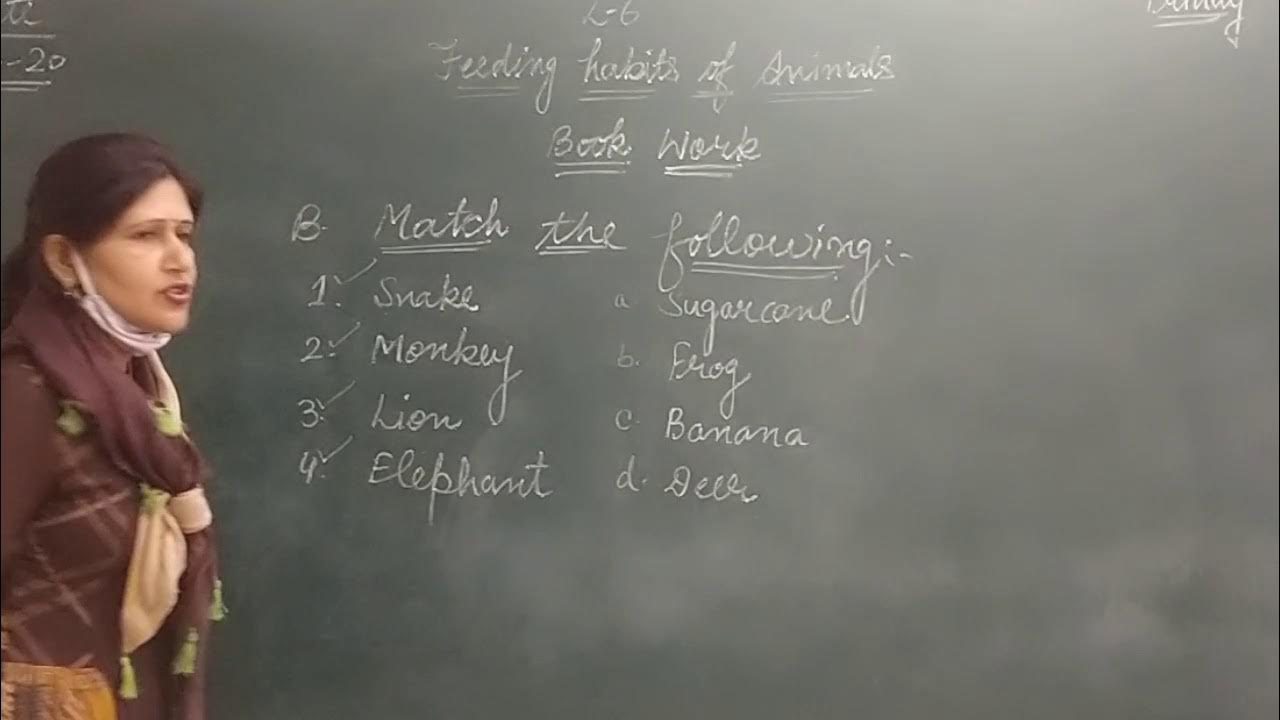 L-6
-20
Feeding habits of Animals
Book Work
B. Match the following:-
1. Snake a. Sugarcane
2. Monkey b. Frog
3. Lion c. Banana
4. Elephant d. Deer